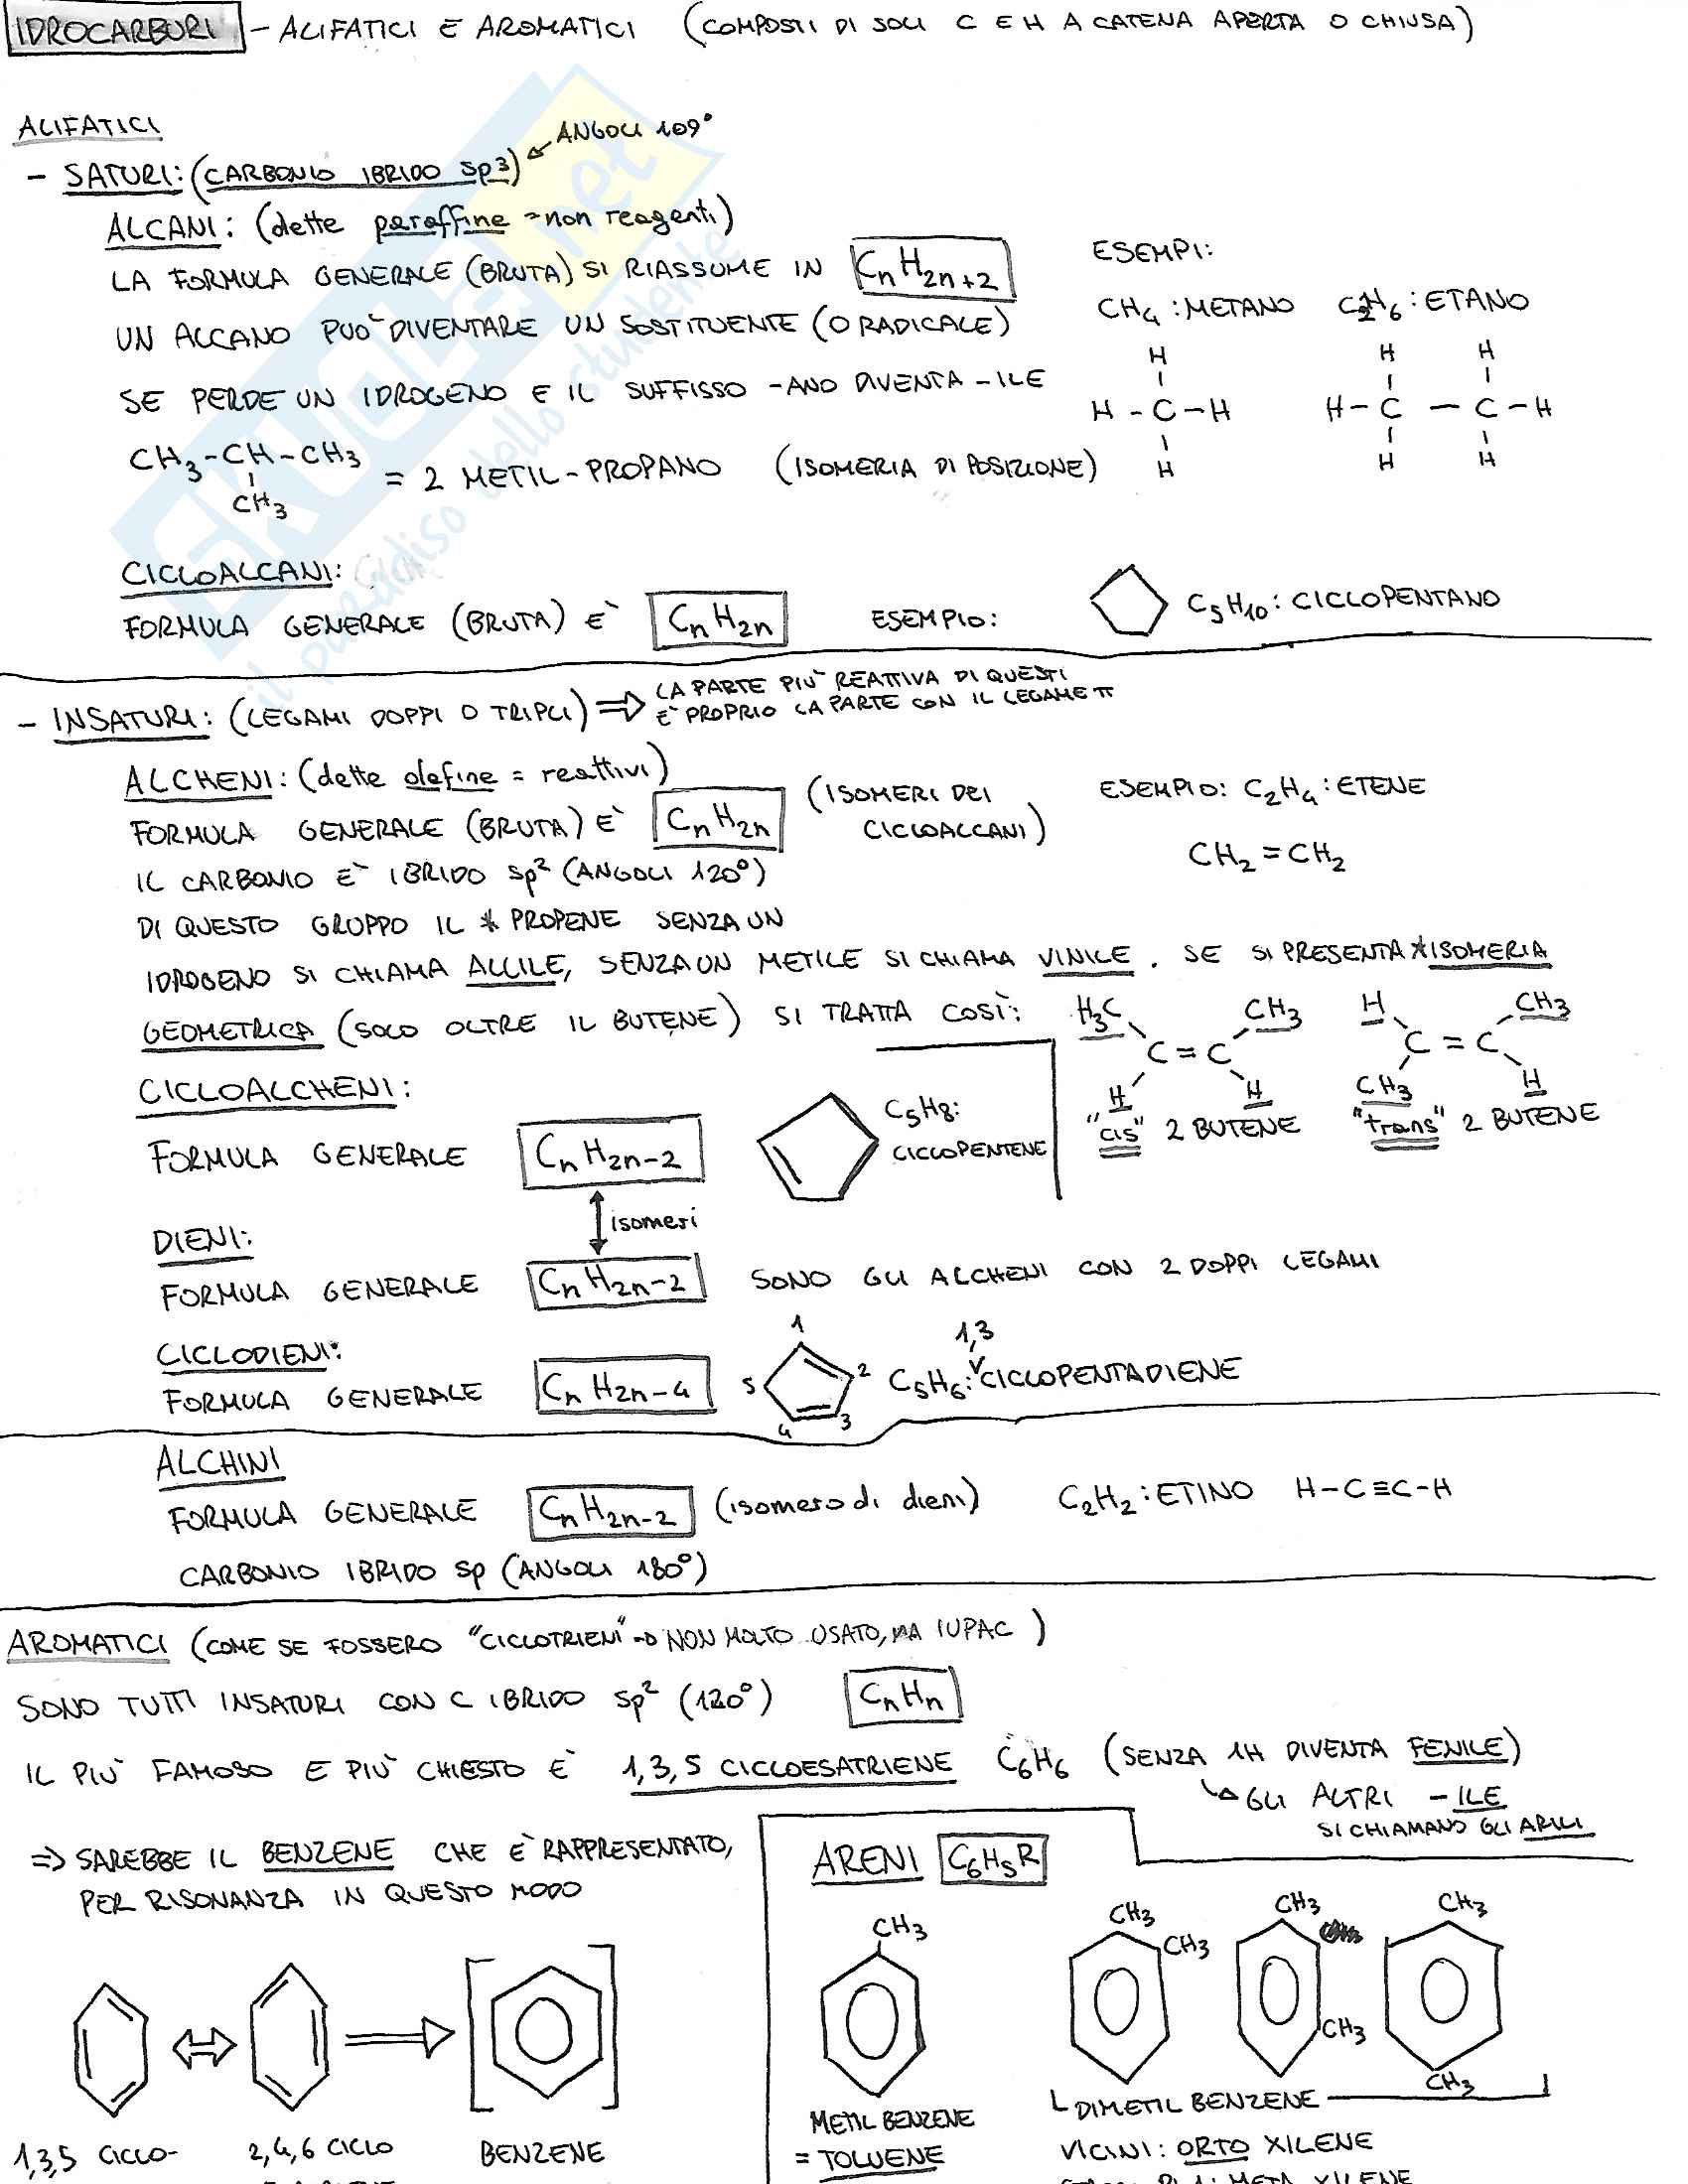 IDROCARBURI - ALIFATICI E AROMATICI (COMPOSTI DI SOLI C E H A CATENA APERTA O CHIUSA)
ALIFATICI
ANGOLI 109°
- SATURI: (CARBONIO IBRIDO sp3)
ALCANI: (dette paraffine = non reagenti)
LA FORMULA GENERALE (BRUTA) SI RIASSUME IN CnH2n+2
ESEMPI:
CH4 : METANO C2H6 : ETANO
UN ALCANO PUO' DIVENTARE UN SOSTITUENTE (O RADICALE)
SE PERDE UN IDROGENO E IL SUFFISSO -ANO DIVENTA -ILE
H H H
H - C - H H - C - C - H
H H H
CH3 - CH - CH3
CH3
= 2 METIL - PROPANO (ISOMERIA DI POSIZIONE)
CICLOALCANI:
FORMULA GENERALE (BRUTA) E' CnH2n ESEMPIO: C5H10 : CICLOPENTANO
- INSATURI: (LEGAMI DOPPI O TRIPLI) ⇒ LA PARTE PIU' REATTIVA DI QUESTI
E' PROPRIO LA PARTE CON IL LEGAME π
ALCHENI: (dette olefine = reattivi)
FORMULA GENERALE (BRUTA) E' CnH2n (ISOMERI DEI
CICLOALCANI)
ESEMPIO: C2H4 : ETENE
CH2 = CH2
IL CARBONIO E' IBRIDO sp2 (ANGOLI 120°)
DI QUESTO GRUPPO IL * PROPENE SENZA UN
IDROGENO SI CHIAMA ALLILE, SENZA UN METILE SI CHIAMA VINILE. SE SI PRESENTA *ISOMERIA
GEOMETRICA (SOLO OLTRE IL BUTENE) SI TRATTA COSÌ:
H3C CH3 H CH3
C = C C = C
H H CH3 H
"cis" 2 BUTENE "trans" 2 BUTENE
CICLOALCHENI:
FORMULA GENERALE CnH2n-2 C5H8:
CICLOPENTENE
isomeri
DIENI:
FORMULA GENERALE CnH2n-2 SONO GLI ALCHENI CON 2 DOPPI LEGAMI
CICLODIENI:
FORMULA GENERALE CnH2n-4
1
2
3
4
5
1,3
C5H6: CICLOPENTADIENE
ALCHINI
FORMULA GENERALE CnH2n-2 (isomero di dieni) C2H2 : ETINO H-C≡C-H
CARBONIO IBRIDO sp (ANGOLI 180°)
AROMATICI (COME SE FOSSERO "CICLOTRIENI" → NON MOLTO USATO, MA IUPAC)
SONO TUTTI INSATURI CON C IBRIDO sp2 (120°) CnHn
IL PIU' FAMOSO E PIU' CHIESTO E' 1,3,5 CICLOESATRIENE C6H6 (SENZA 1H DIVENTA FENILE)
GLI ALTRI -ILE
SI CHIAMANO GLI ARILI
⇒ SAREBBE IL BENZENE CHE E' RAPPRESENTATO,
PER RISONANZA IN QUESTO MODO
ARENI C6H5R
CH3
CH3
CH3
CH3
CH3
CH3
CH3
METIL BENZENE
= TOLUENE
DIMETIL BENZENE
VICINI: ORTO XILENE
1,3,5 CICLO- 2,4,6 CICLO BENZENE
SKUOLA.net
il paradiso dello studente